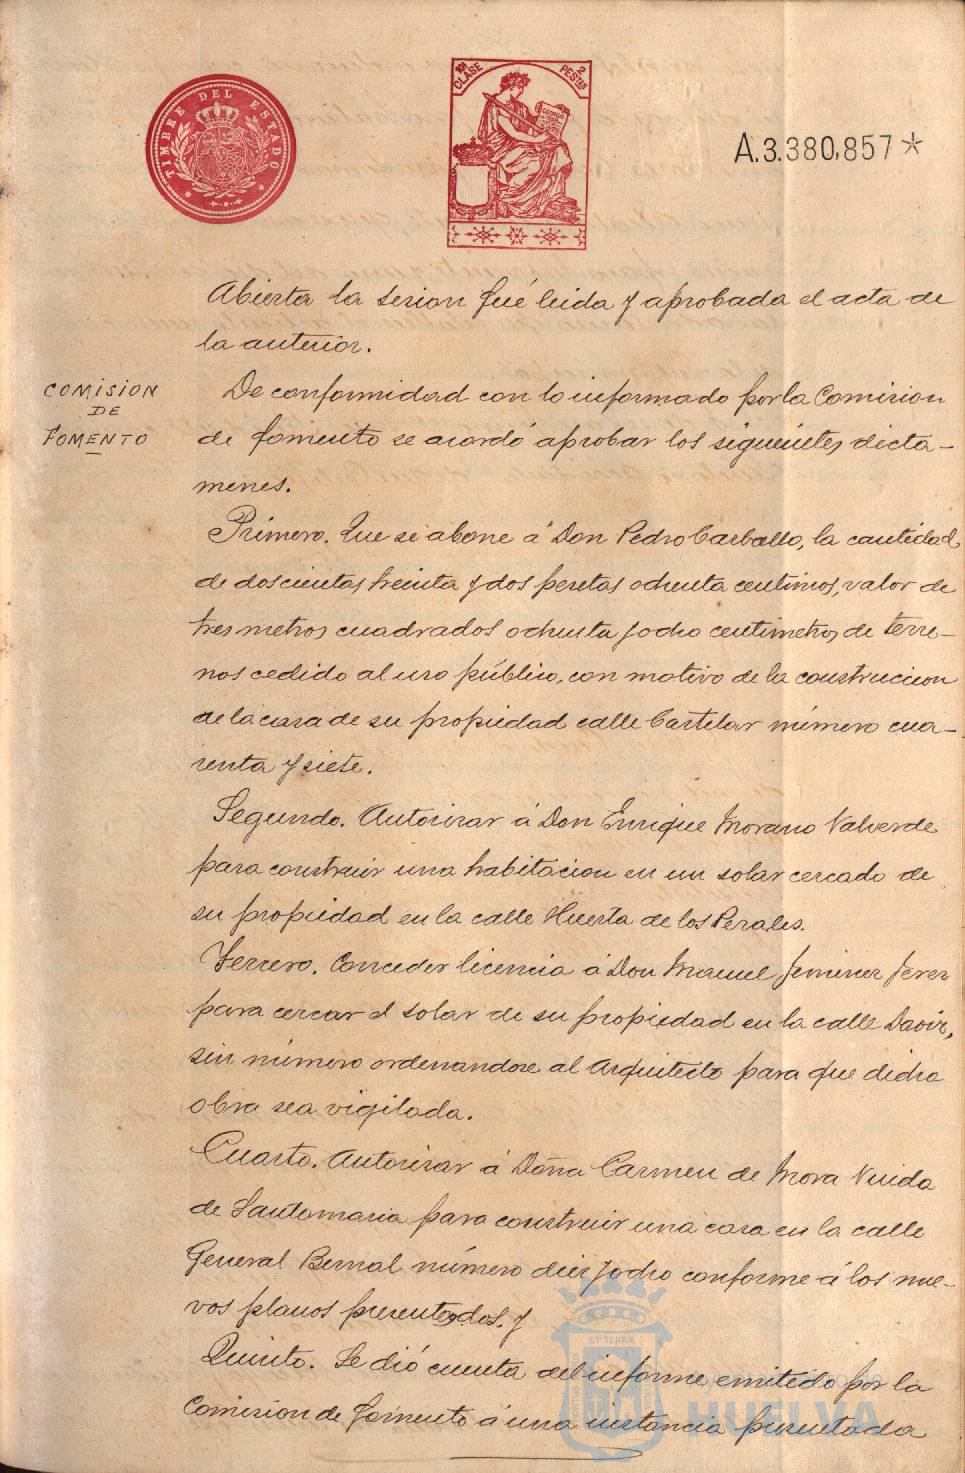 TIMBRE DEL ESTADO
10ª CLASE 2 PESTAS
A.3.380,857*
Abierta la sesion fué leida y aprobada el acta de
la anterior.
COMISION
DE
FOMENTO
De conformidad con lo informado por la Comision
de fomento se acordó aprobar los siguientes dicta-
menes.
Primero. Que se abone á Don Pedro Carballo, la cantidad
de doscientas treinta y dos pesetas ochenta centimos, valor de
tres metros cuadrados ochenta y ocho centimetros de terre-
nos cedido al uso público, con motivo de la construccion
de la casa de su propiedad calle Castelar número cua-
renta y siete.
Segundo. Autorizar á Don Enrique Morano Valverde
para construir una habitacion en un solar cercado de
su propiedad en la calle Huerta de los Perales.
Tercero. Conceder licencia á Don Manuel Jiminez Jerez
para cercar el solar de su propiedad en la calle Daoiz,
sin número ordenandose al Arquitecto para que dicha
obra sea vigilada.
Cuarto. Autorizar á Doña Carmen de Mora Viuda
de Santamaria para construir una casa en la calle
General Bernal número diez y ocho conforme á los nue-
vos planos presentados. y
Quinto. Se dió cuenta del informe emitido por la
Comision de fomento á una instancia presentada
HUELVA